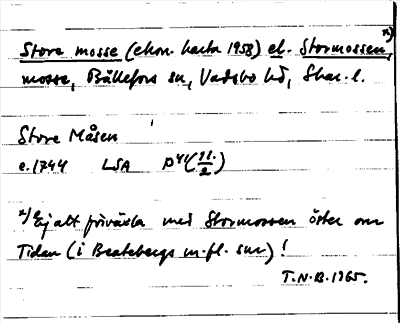 Store mosse (ekon. karta 1958) el. Stormossen, x)
mosse, Bällefors sn, Vadsbo hd, Skar. l.
Store Måsen
c. 1744 LSA P41(11/2)
x) Ej att förväxla med Stormossen öster om
Tidan (i Beatebergs m.fl. snr)!
T.N.B. 1965.